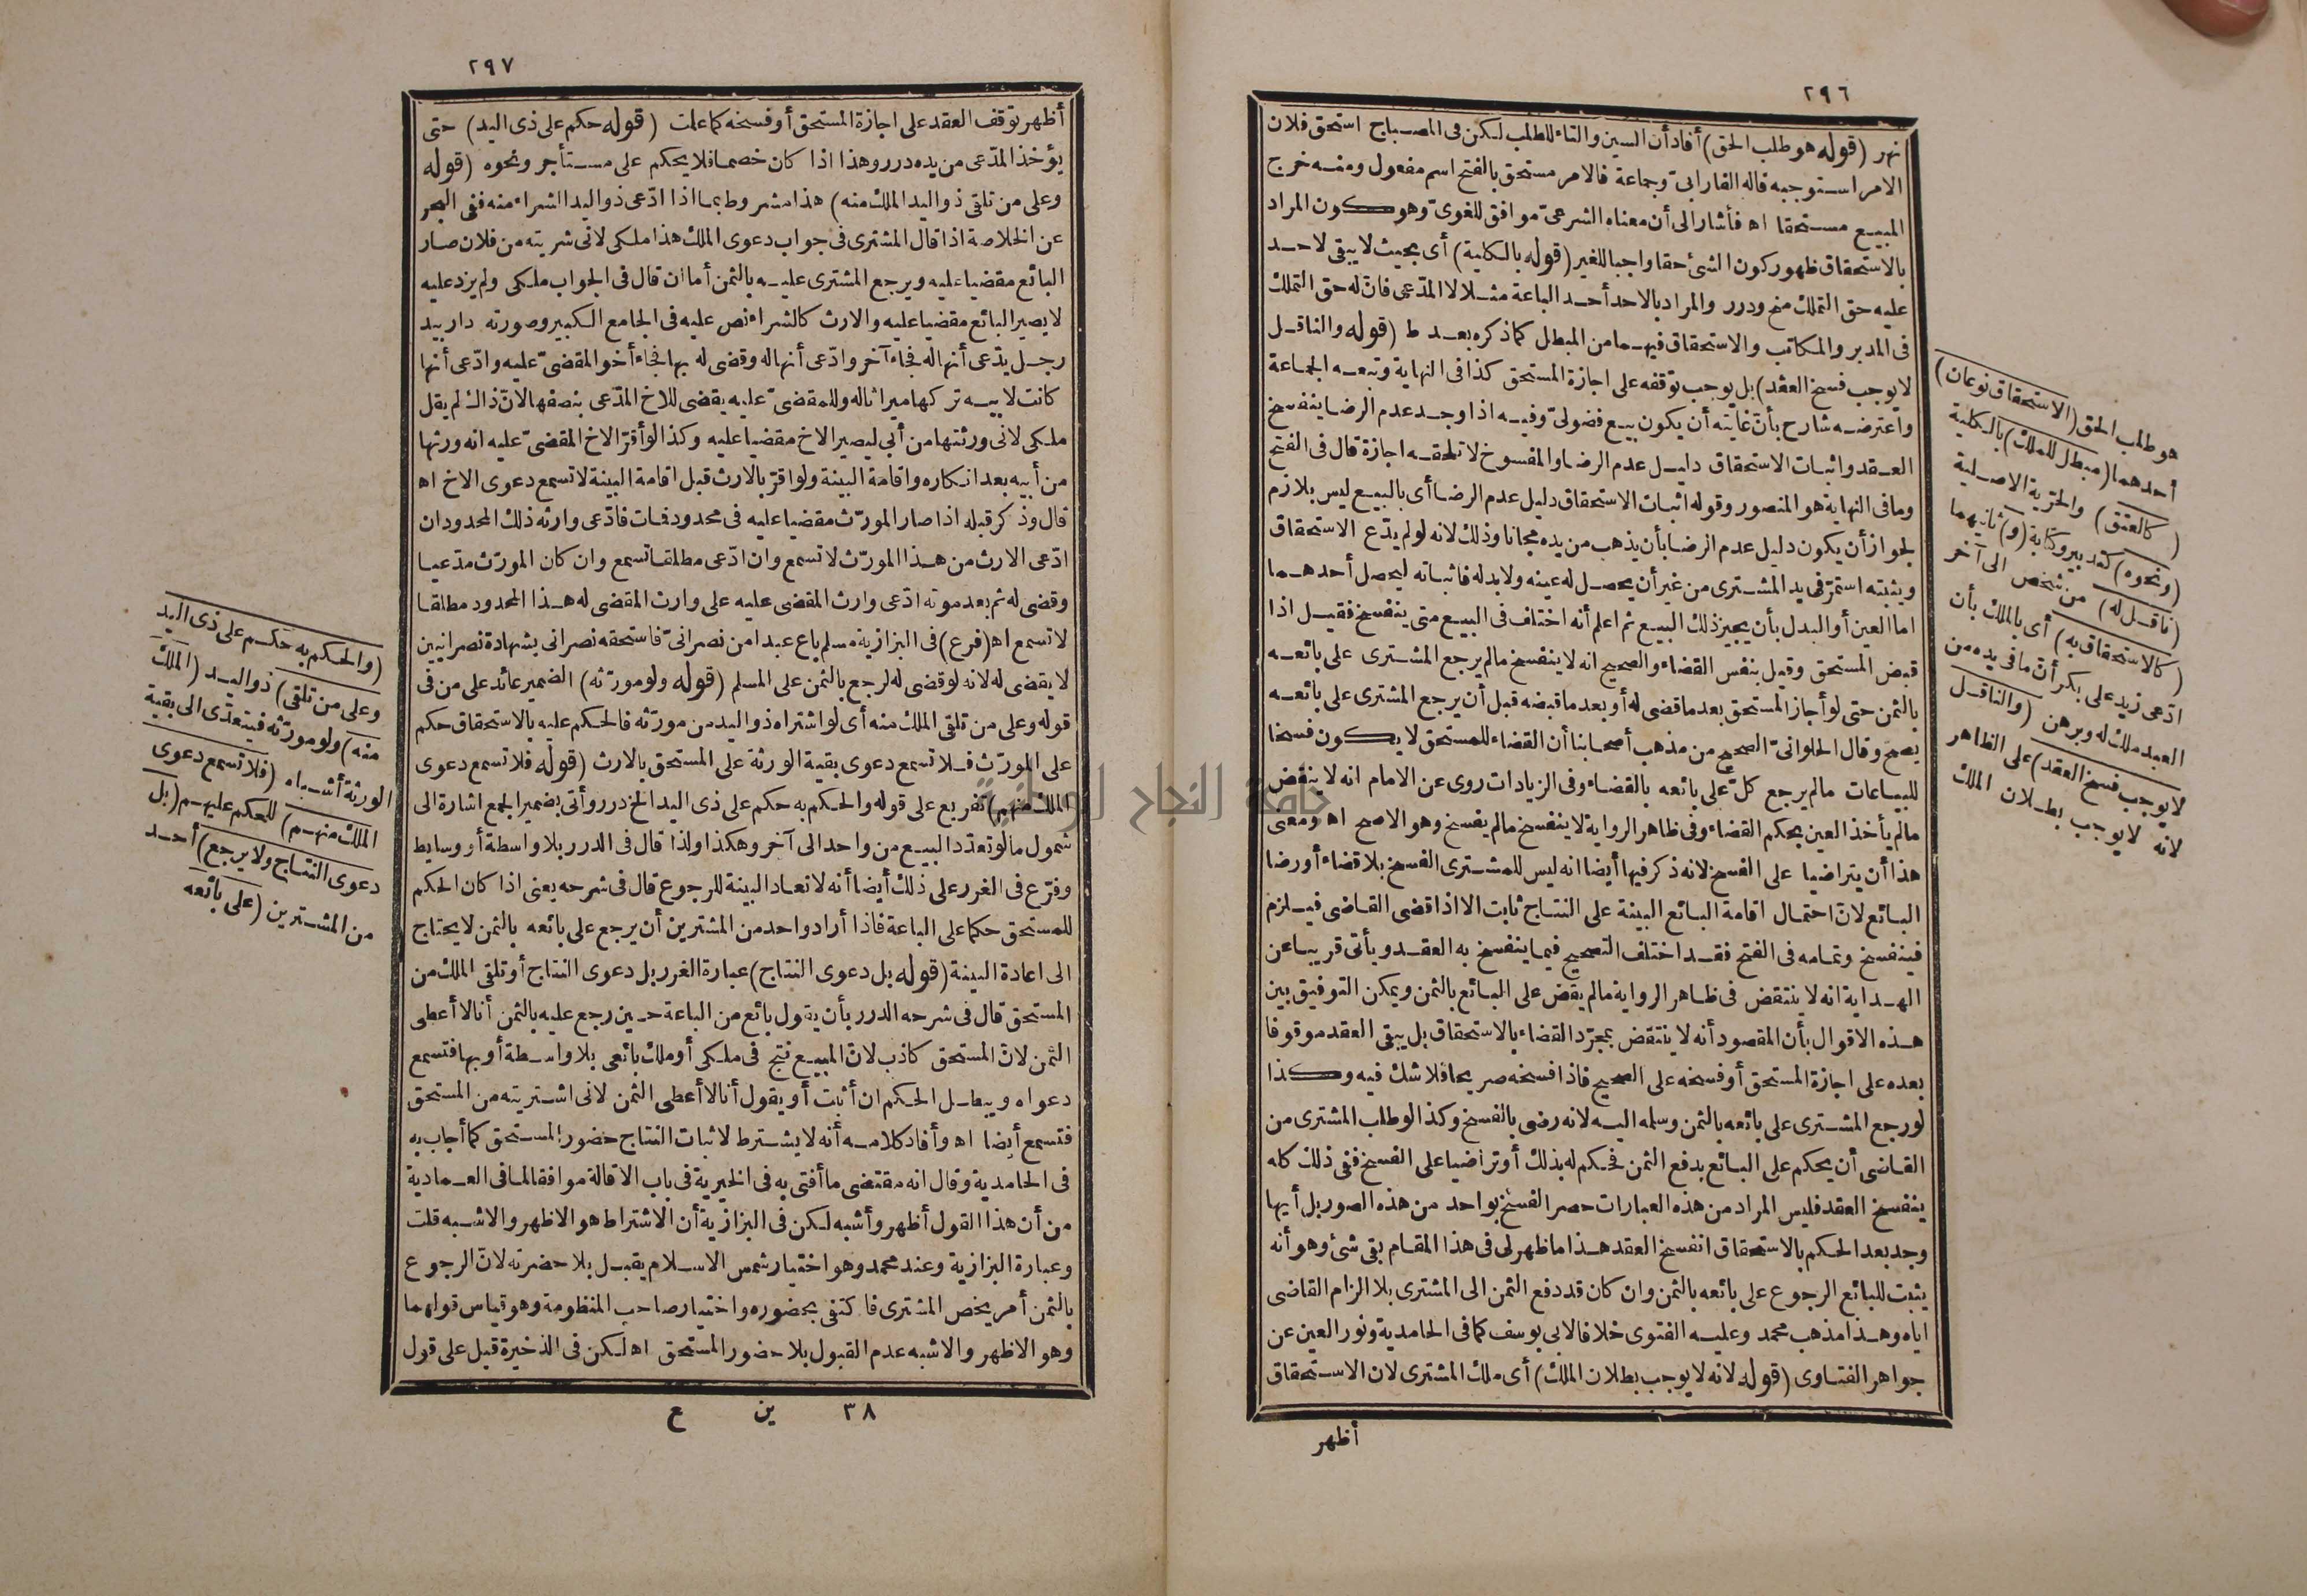 ٢٩٦
نهر (قوله هو طلب الحق) أفاد أن السين والتاء للطلب لكن فى المصباح استحق فلان
الامر استوجبه قاله الفارابىّ وجماعة فالامر مستحق بالفتح اسم مفعول ومنه خرج
المبيع مستحقا اه فأشار الى أن معناه الشرعىّ موافق للغوىّ وهو كون المراد
بالاستحقاق ظهور كون الشئ حقا واجبا للغير (قوله بالكلية) أى بحيث لا يبقى لاحد
عليه حق التملك منح ودرر والمراد بالاحد أحد الباعة مثلا لا المدّعى فانّ له حق التملك
فى المدبر والمكاتب والاستحقاق فيهما من المبطل كما ذكره بعد ط (قوله والناقل
لا يوجب فسخ العقد) بل يوجب توقفه على اجازة المستحق كذا فى النهاية وتبعه الجماعة
واعترضه شارح بأنّ غايته أن يكون بيع فضولىّ وفيه اذا وجد عدم الرضا ينفسخ
العقد واثبات الاستحقاق دليل عدم الرضا والمفسوخ لا تلحقه اجازة قال فى الفتح
وما فى النهاية هو المنصور وقوله اثبات الاستحقاق دليل عدم الرضا أى بالبيع ليس بلازم
لجواز أن يكون دليل عدم الرضا بأن يذهب من يده مجانا وذلك لانه لو لم يدّع الاستحقاق
ويثبته استمرّ فى يد المشترى من غير أن يحصل له عينه ولا بدله فاثباته ليحصل أحدهما
اما العين أو البدل بأن يجيز ذلك البيع ثم اعلم أنه اختلف فى البيع متى ينفسخ فقيل اذا
قبض المستحق وقيل بنفس القضاء والصحيح انه لا ينفسخ ما لم يرجع المشترى على بائعه
بالثمن حتى لو أجاز المستحق بعد ما قضى له أو بعد ما قبضه قبل أن يرجع المشترى على بائعه
يصح وقال الحلوانىّ الصحيح من مذهب أصحابنا أن القضاء للمستحق لا يكون فسخا
للبياعات ما لم يرجع كلّ على بائعه بالقضاء وفى الزيادات روى عن الامام انه لا ينقض
ما لم يأخذ العين بحكم القضاء وفى ظاهر الرواية لا ينفسخ ما لم يفسخ وهو الاصح اه ومعنى
هذا أن يتراضيا على الفسخ لانه ذكر فيها أيضا انه ليس للمشترى الفسخ بلا قضاء أو رضا
البائع لانّ احتمال اقامة البائع البينة على النتاج ثابت الا اذا قضى القاضى فيلزم
فينفسخ وتمامه فى الفتح فقد اختلف التصحيح فيما ينفسخ به العقد ويأتى قريبا عن
الهداية انه لا ينتقض فى ظاهر الرواية ما لم يقض على البائع بالثمن ويمكن التوفيق بين
هذه الاقوال بأن المقصود أنه لا ينتقض بمجرّد القضاء بالاستحقاق بل يبقى العقد موقوفا
بعده على اجازة المستحق أو فسخه على الصحيح فاذا فسخه صريحا فلا شك فيه وكذا
لو رجع المشترى على بائعه بالثمن وسلمه اليه لانه رضى بالفسخ وكذا لو طلب المشترى من
القاضى أن يحكم على البائع بدفع الثمن فحكم له بذلك أو تراضيا على الفسخ ففى ذلك كله
ينفسخ العقد فليس المراد من هذه العبارات حصر الفسخ بواحد من هذه الصور بل أيها
وجد بعد الحكم بالاستحقاق انفسخ العقد هذا ما ظهر لى فى هذا المقام بقى شئ وهو أنه
يثبت للبائع الرجوع على بائعه بالثمن وان كان قد دفع الثمن الى المشترى بلا الزام القاضى
اياه وهذا مذهب محمد وعليه الفتوى خلافا لابى يوسف كما فى الحامدية ونور العين عن
جواهر الفتاوى (قوله لانه لا يوجب بطلان الملك) أى ملك المشترى لان الاستحقاق
أظهر
هو طلب الحق (الاستحقاق نوعان)
أحدهما (مبطل للملك) بالكلية
(كالعتق) والحرّية الاصلية
(ونحوه) كتدبير وكتابة (و) ثانيهما
(ناقل له) من شخص الى آخر
(كالاستحقاق به) أى بالملك بأن
ادّعى زيد على بكر أن ما فى يده من
العبد ملك له وبرهن (والناقل
لا يوجب فسخ العقد) على الظاهر
لانه لا يوجب بطلان الملك
٢٩٧
أظهر توقف العقد على اجازة المستحق أو فسخه كما علمت (قوله حكم على ذى اليد) حتى
يؤخذ المدّعى من يده درر وهذا اذا كان خصما فلا يحكم على مستأجر ونحوه (قوله
وعلى من تلقى ذو اليد الملك منه) هذا مشروط بما اذا ادّعى ذو اليد الشراء منه ففى البحر
عن الخلاصة اذا قال المشترى فى جواب دعوى الملك هذا ملكى لانى شريته من فلان صار
البائع مقضيا عليه ويرجع المشترى عليه بالثمن أما ان قال فى الجواب ملكى ولم يزد عليه
لا يصير البائع مقضيا عليه والارث كالشراء نص عليه فى الجامع الكبير وصورته دار بيد
رجل يدّعى أنها له فجاء آخر وادّعى أنها له وقضى له بها فجاء أخو المقضىّ عليه وادّعى أنها
كانت لابيه تركها ميراثا له وللمقضىّ عليه يقضى للاخ المدّعى بنصفها لانّ ذاك لم يقل
ملكى لانى ورثتها من أبى ليصير الاخ مقضيا عليه وكذا لو أقرّ الاخ المقضىّ عليه انه ورثها
من أبيه بعد انكاره واقامة البينة ولو اقرّ بالارث قبل اقامة البينة لا تسمع دعوى الاخ اه
قال وذكر قبله اذا صار المورّث مقضيا عليه فى محدود فمات فادّعى وارثه ذلك المحدود ان
ادّعى الارث من هذا المورّث لا تسمع وان ادّعى مطلقا تسمع وان كان المورّث مدّعيا
وقضى له ثم بعد موته ادّعى وارث المقضى عليه على وارث المقضى له هذا المحدود مطلقا
لا تسمع اه (فرع) فى البزازية مسلم باع عبدا من نصرانىّ فاستحقه نصرانى بشهادة نصرانيين
لا يقضى له لانه لو قضى له لرجع بالثمن على المسلم (قوله ولو مورّثه) الضمير عائد على من فى
قوله وعلى من تلقى الملك منه أى لو اشتراه ذو اليد من مورّثه فالحكم عليه بالاستحقاق حكم
على المورّث فلا تسمع دعوى بقية الورثة على المستحق بالارث (قوله فلا تسمع دعوى
الملك منهم) تفريع على قوله والحكم به حكم على ذى اليد الخ درر وأتى بضمير الجمع اشارة الى
شمول ما لو تعدّد البيع من واحد الى آخر وهكذا ولذا قال فى الدرر بلا واسطة أو وسايط
وفرّع فى الغرر على ذلك أيضا أنه لا تعاد البينة للرجوع قال فى شرحه يعنى اذا كان الحكم
للمستحق حكما على الباعة فاذا أراد واحد من المشترين أن يرجع على بائعه بالثمن لا يحتاج
الى اعادة البينة (قوله بل دعوى النتاج) عبارة الغرر بل دعوى النتاج أو تلقى الملك من
المستحق قال فى شرحه الدرر بأن يقول بائع من الباعة حين رجع عليه بالثمن أنا لا أعطى
الثمن لانّ المستحق كاذب لانّ المبيع نتج فى ملكى أو ملك بائعى بلا واسطة أو بها فتسمع
دعواه ويبطل الحكم ان أثبت أو يقول أنا لا أعطى الثمن لانى اشتريته من المستحق
فتسمع أيضا اه وأفاد كلامه أنه لا يشترط لاثبات النتاج حضور المستحق كما أجاب به
فى الحامدية وقال انه مقتضى ما أفتى به فى الخيرية فى باب الاقالة موافقا لما فى العمادية
من أن هذا القول أظهر وأشبه لكن فى البزازية أن الاشتراط هو الاظهر والاشبه قلت
وعبارة البزازية وعند محمد وهو اختيار شمس الاسلام يقبل بلا حضرته لانّ الرجوع
بالثمن أمر يخص المشترى فاكتفى بحضوره واختيار صاحب المنظومة وهو قياس قولهما
وهو الاظهر والاشبه عدم القبول بلا حضور المستحق اه لكن فى الذخيرة قيل على قول
٣٨ ين ع
(والحكم به حكم على ذى اليد
وعلى من تلقى) ذو اليد (الملك
منه) ولو مورّثه فيتعدّى الى بقية
الورثة أشباه (فلا تسمع دعوى
الملك منهم) للحكم عليهم (بل
دعوى النتاج ولا يرجع) أحد
من المشترين (على بائعه
جامعة النجاح الوطنية